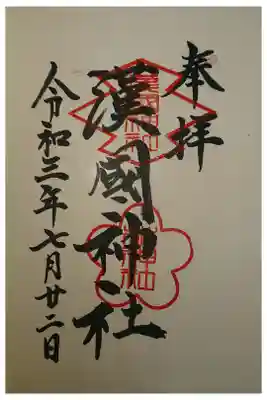 奉拝
漢國神社
令和三年七月廿二日